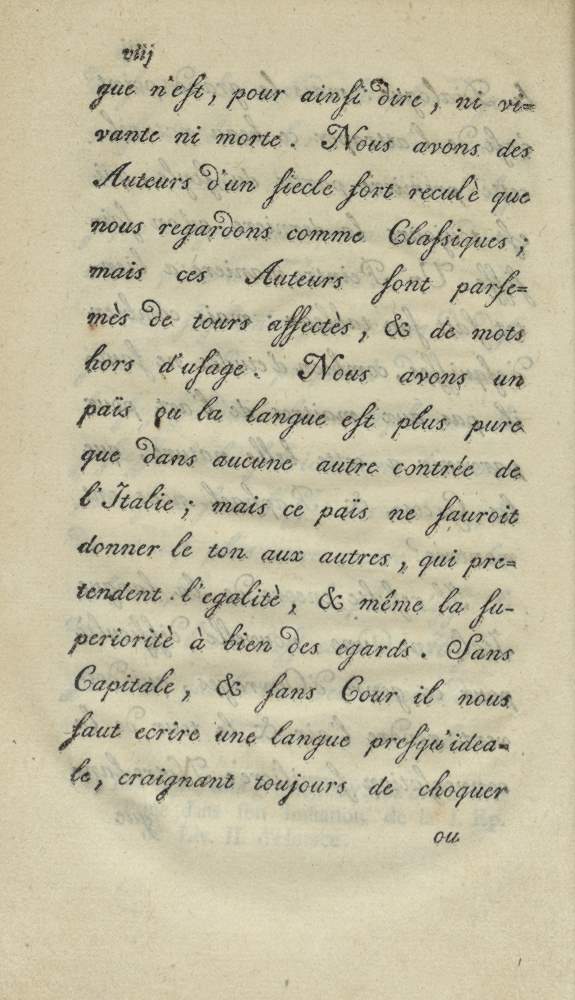 viij
gue n'eſt, pour ainſi dire, ni vi=
vante ni morte. Nous avons des
Auteurs d'un ſiecle fort reculè que
nous regardons comme Claſsiques;
mais ces Auteurs ſont parſe=
mès de tours affectès, & de mots
hors d'uſage. Nous avons un
païs ou la langue eſt plus pure
que dans aucune autre contrée de
l'Italie; mais ce païs ne ſauroit
donner le ton aux autres, qui pre=
tendent l'egalitè, & même la ſu-
perioritè à bien des egards. Sans
Capitale, & ſans Cour il nous
faut ecrire une langue preſqu'idea=
le, craignant toujours de choquer
ou